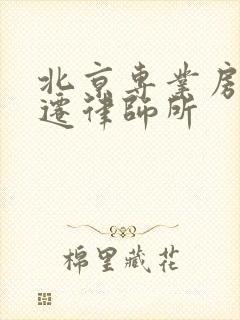 北京專業房
遷律師所
棉里藏花